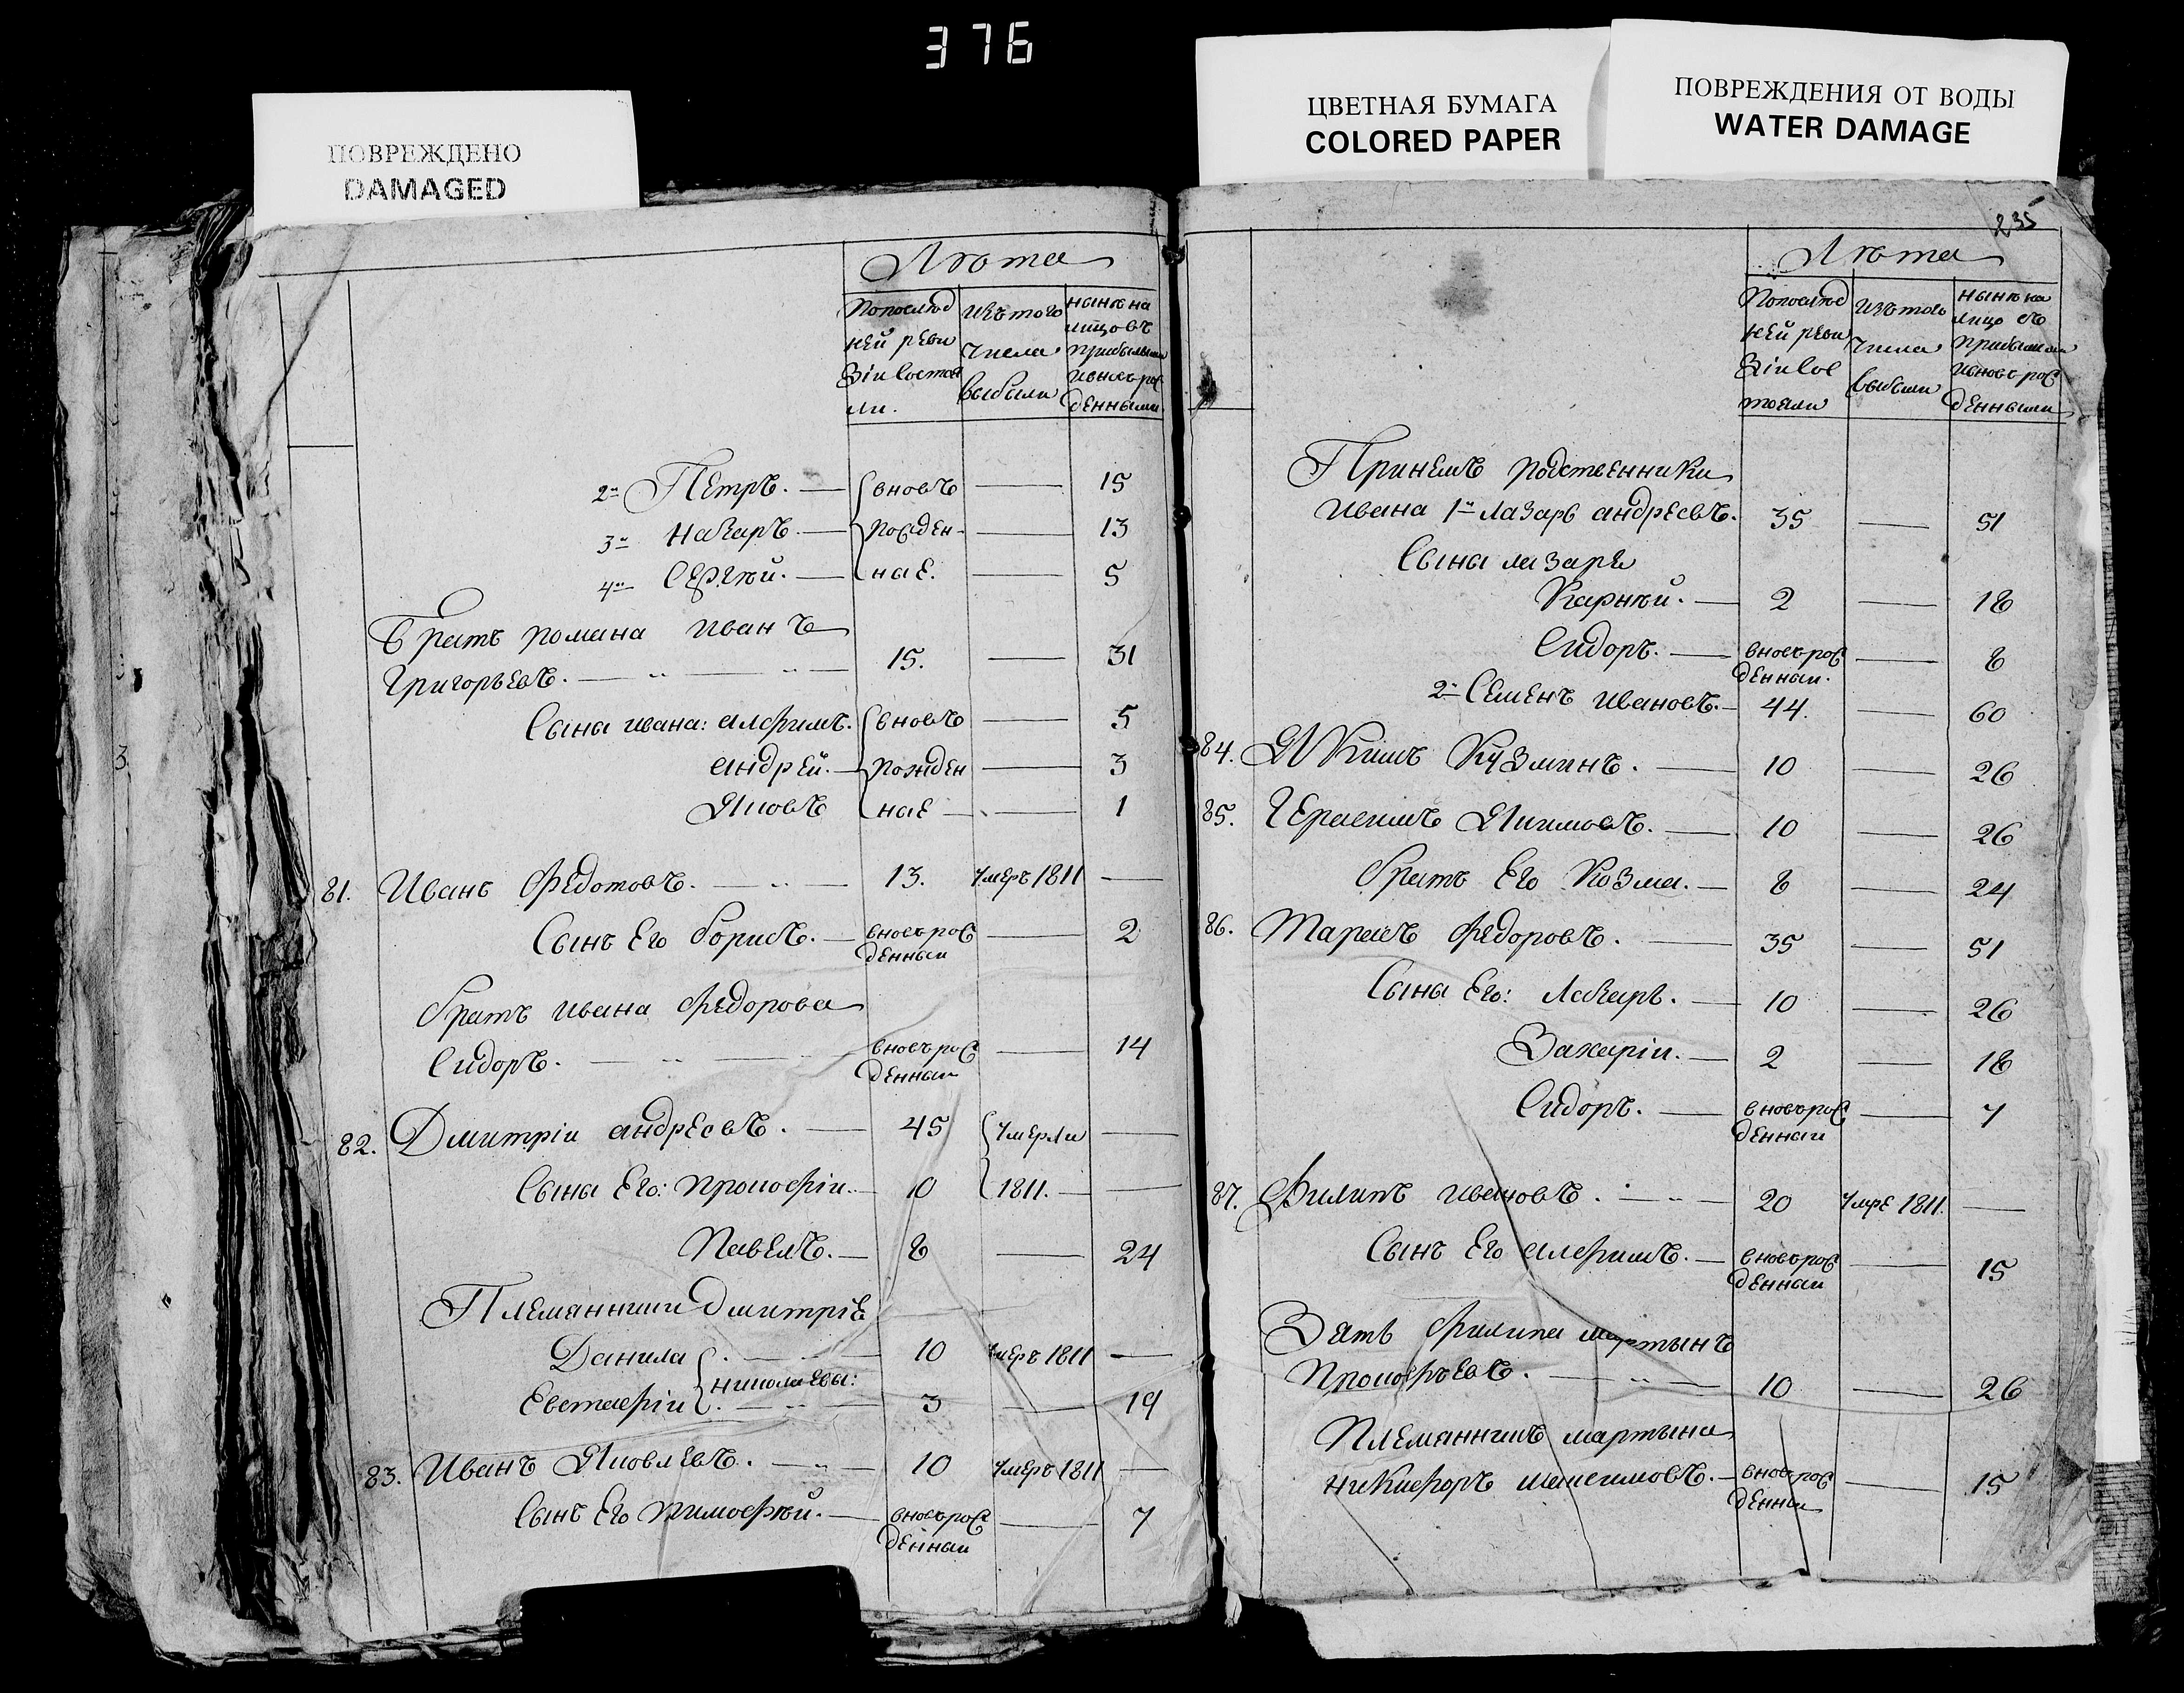 376
ПОВРЕЖДЕНО
DAMAGED
ЦВЕТНАЯ БУМАГА
COLORED PAPER
ПОВРЕЖДЕНИЯ ОТ ВОДЫ
WATER DAMAGE
Лѣта
Попослѣд ней реви зіи состоя ли.
Изъ того числа выбыли
нынѣ на лицо съ прибылыми и вновь рож денными
2й Петръ. — вновь — 15
3й Назаръ. — рожден — 13
4й Сергѣй. — ные. — 5
Братъ романа Иванъ
Григорьевъ. — 15. — 31
Сыны ивана: алефимъ. вновь — 5
андрей. — рожден — 3
Яковъ ные — 1
81. Иванъ Федотовъ. — 13. умеръ 1811 —
Сынъ Его борисъ. — вновь рож — 2
денныи
братъ ивана Федорова
Сидоръ. — вновь рож — 14
денныи
82. Дмитріи андреевъ. — 45 умерли —
Сыны Его: прокофіи. — 10 1811. —
Павелъ. — 8 — 24
Племянники дмитрія
Данила — 10 умеръ 1811 —
николаевы:
Евстафіи — 3 — 19
83. Иванъ Яковлевъ. — 10 умеръ 1811 —
Сынъ Его тимофѣй. — вновь рож — 7
денныи
235
Лѣта
Попослѣд ней реви зіи сос тояли
Изъ того числа выбыли
нынѣ на лицо съ прибылыми и вновь рож денными
Принемъ родственники
Ивана 1й лазарь андреевъ. 35 — 51
Сыны лазаря
Карнѣй. — 2 — 18
Сидоръ. — вновь рож — 8
денныи.
2й Семенъ ивановъ. — 44. — 60
84. Якимъ Кузминъ. — 10 — 26
85. Герасимъ Якимовъ. — 10 — 26
братъ Его Козма. — 8 — 24
86. Тарасъ Федоровъ. — 35 — 51
Сыны Его: Лазарь. — 10 — 26
Захаріи. — 2 — 18
Сидоръ. — вновь рож — 7
денныи
87. Филипъ ивановъ. — 20 умре 1811. —
Сынъ Его алефимъ. — вновь рож — 15
денныи
Зять Филипа мартынъ
Прокофьевъ. — 10 — 26
Племянникъ мартына
никифоръ максимовъ. — вновь рож — 15
денны